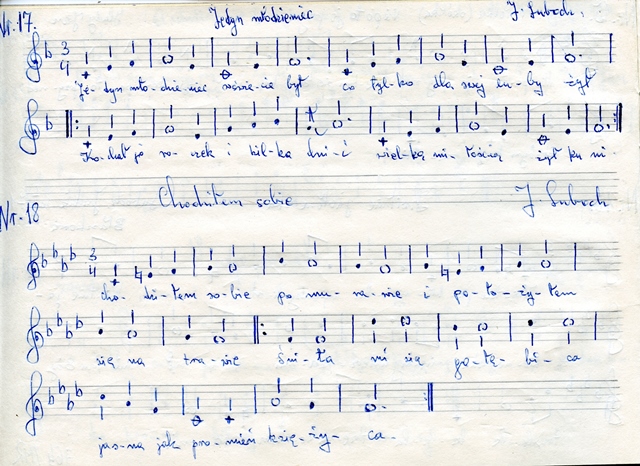 Nr. 17. Jedyn młodzieniec J. Luboch.
3 4
Je-dyn mło-dzie-niec w świe-cie był co tyl-ko dla swej lu-by żył
Ko-chał ją ro-czek i kil-ka dni i wiel-ką mi-łością żył ku ni
Nr. 18 Chodziłem sobie J. Luboch
3 4
cho-dzi-łem so-bie po mu-ra-wie i po-ło-ży-łem
się na tra-wie śni-ła mi się go-łę-bi-ca
jas-na jak pro-mień księ-ży-ca.